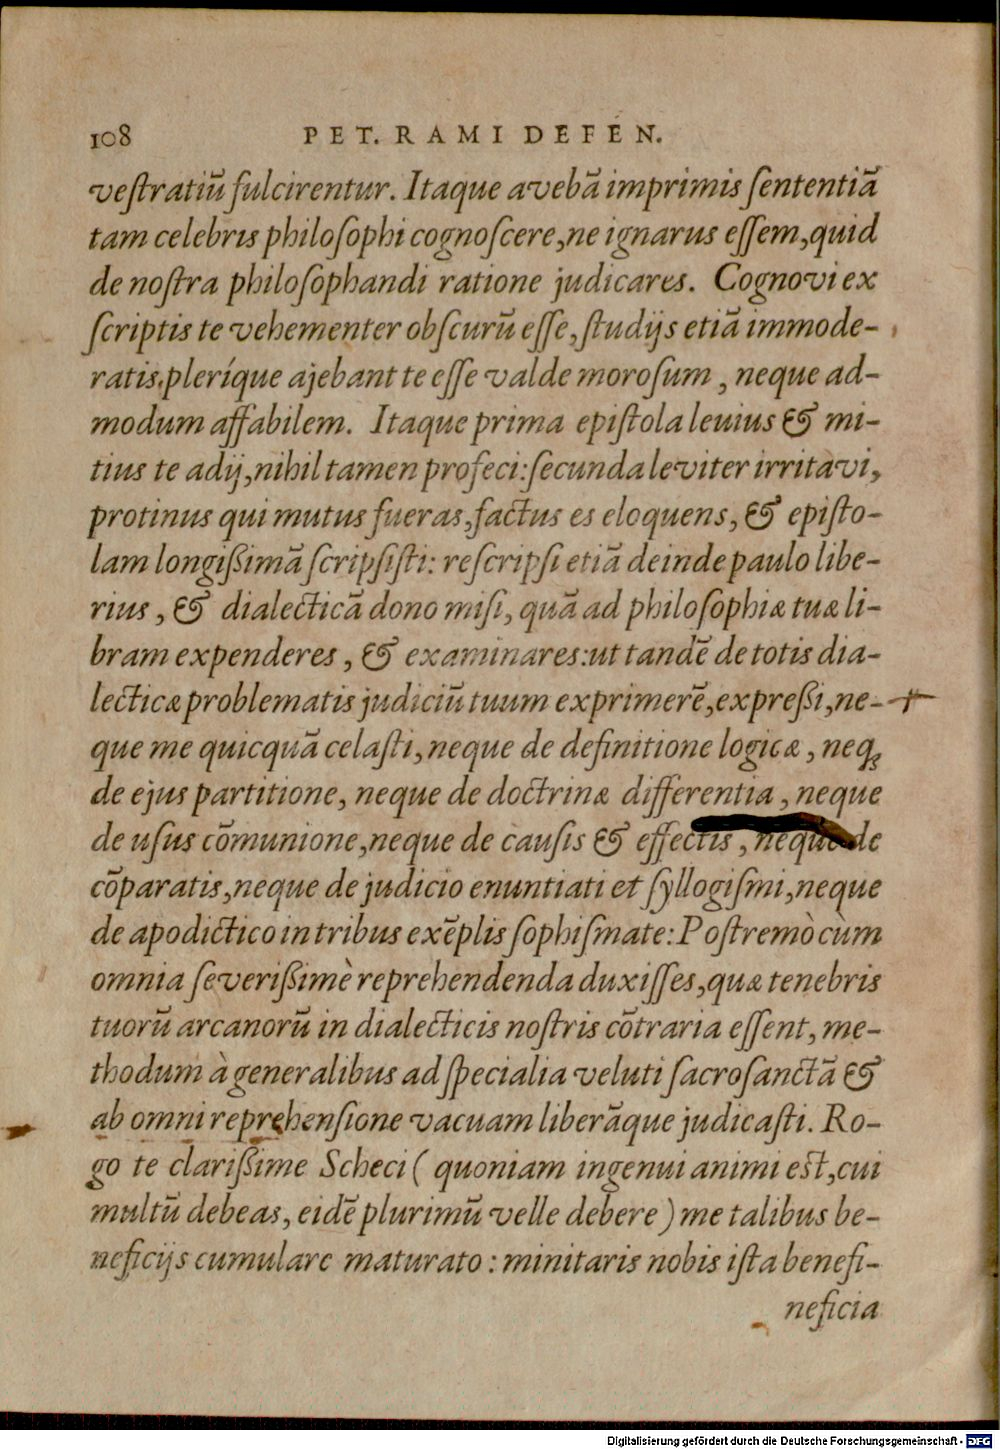 108 PET. RAMI DEFEN.
veſtratiũ fulcirentur. Itaque avebã imprimis ſententiã
tam celebris philoſophi cognoſcere, ne ignarus eſſem, quid
de noſtra philoſophandi ratione judicares. Cognovi ex
ſcriptis te vehementer obſcurũ eſſe, ſtudijs etiã immode-
ratis, pleríque ajebant te eſſe valde moroſum, neque ad-
modum affabilem. Itaque prima epiſtola leuius & mi-
tius te adij, nihil tamen profeci: ſecunda leviter irritavi,
protinus qui mutus fueras, factus es eloquens, & epiſto-
lam longißimã ſcripſiſti: reſcripſi etiã deinde paulo libe-
rius, & dialecticã dono miſi, quã ad philoſophiæ tuæ li-
bram expenderes, & examinares: ut tandẽ de totis dia-
lecticæ problematis judiciũ tuum exprimerẽ, expreßi, ne-
que me quicquã celaſti, neque de definitione logicæ, neq₃
de ejus partitione, neque de doctrinæ differentia, neque
de uſus cõmunione, neque de cauſis & effectis, neque de
cõparatis, neque de judicio enuntiati et ſyllogiſmi, neque
de apodictico in tribus exẽplis ſophiſmate: Poſtremò cùm
omnia ſeverißimè reprehendenda duxiſſes, quæ tenebris
tuorũ arcanorũ in dialecticis noſtris cõtraria eſſent, me-
thodum à generalibus ad ſpecialia veluti ſacroſanctã &
ab omni reprehenſione vacuam liberãque judicaſti. Ro-
go te clarißime Scheci (quoniam ingenui animi est, cui
multũ debeas, eidẽ plurimũ velle debere) me talibus be-
neficijs cumulare maturato: minitaris nobis iſta benefi-
neficia
Digitalisierung gefördert durch die Deutsche Forschungsgemeinschaft - DFG